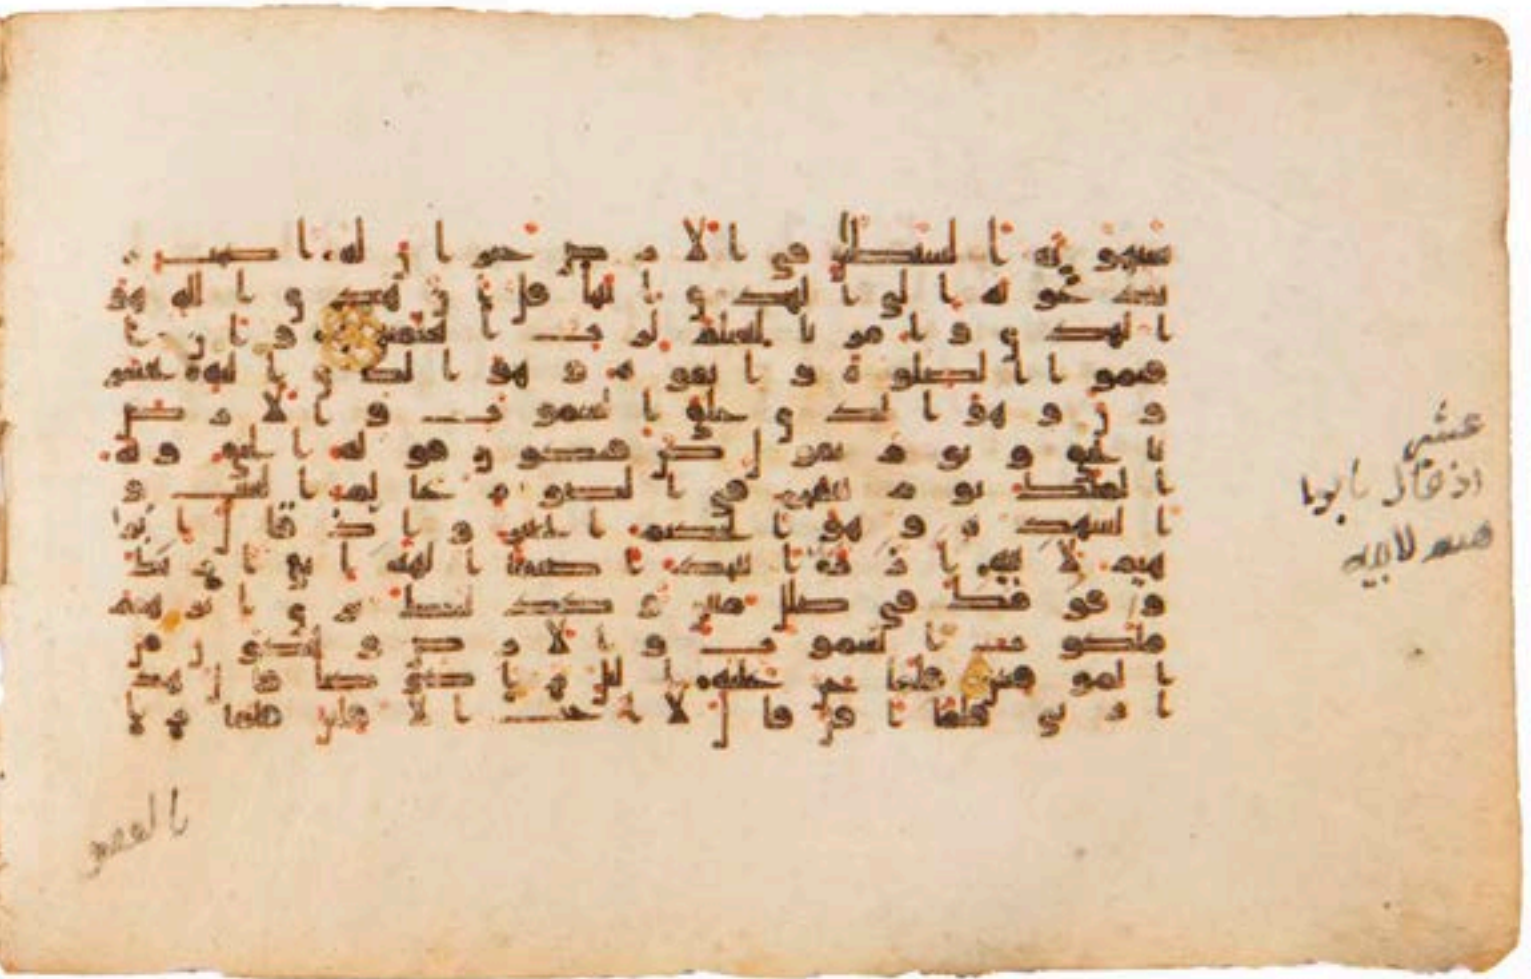 ستهوته الشيطين في الارض حيران له اصحب
يدعونه الى الهدى ائتنا قل ان هدى الله هو
الهدى وامرنا لنسلم لرب العلمين وان ا
قيموا الصلوة واتقوه وهو الذي اليه تحشر
ون وهو الذي خلق السموت والارض
بالحق ويوم يقول كن فيكون قوله الحق وله
الملك يوم ينفخ في الصور علم الغيب و
الشهدة وهو الحكيم الخبير واذ قال ابر
هيم لابيه ازر اتتخذ اصناما الهة اني اريك
وقومك في ضلل مبين وكذلك نري ابرهيم
ملكوت السموت والارض وليكون من
الموقنين فلما جن عليه اليل را كوكبا قال هذ
ا ربي فلما افل قال لا احب الافلين فلما را
عشر
اذ قال ابرا
هيم لابيه
القمر